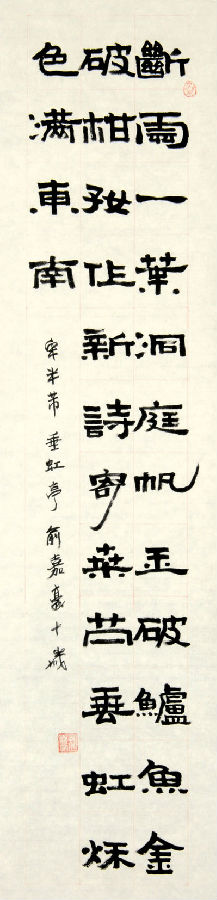 斷雨一葉洞庭帆玉破鱸魚金
破柑好作新詩寄桑苎垂虹秋
色满東南
宋米芾垂虹亭俞嘉豪十歲